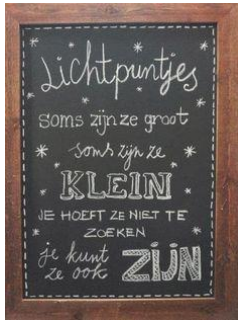 Lichtpuntjes
soms zijn ze groot
soms zijn ze
KLEIN
JE HOEFT ZE NIET TE
ZOEKEN
je kunt
ze ook ZIJN